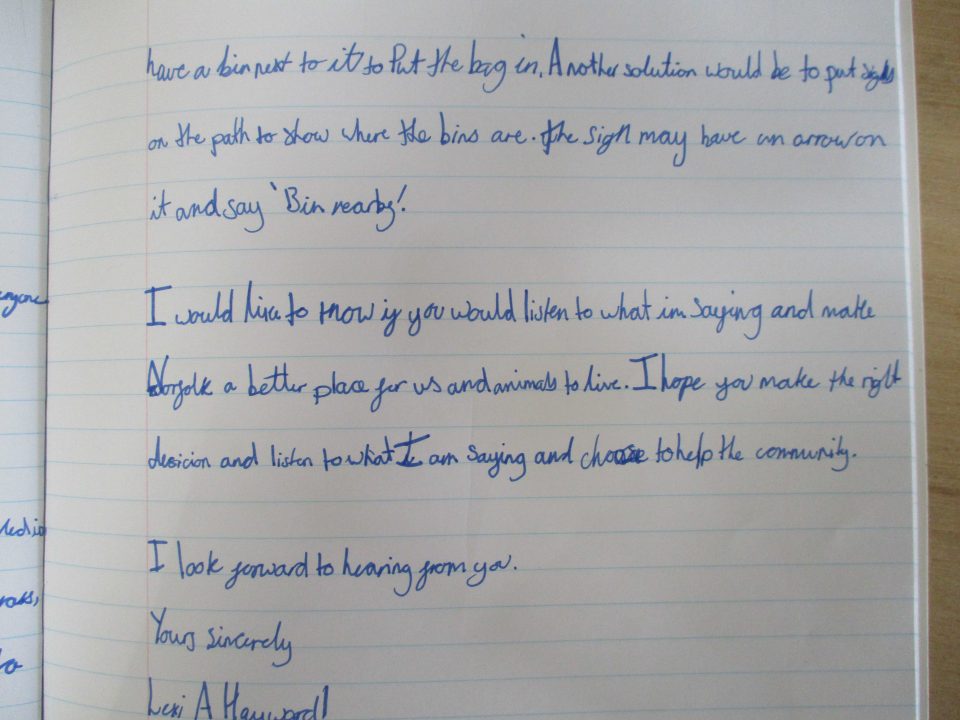 have a bin next to it to Put the bag in. Another solution would be to put signs
on the path to show where the bins are. The sign may have an arrow on
it and say 'Bin nearby!'
I would like to know if you would listen to what im saying and make
Norfolk a better place for us and animals to live. I hope you make the right
desicion and listen to what I am saying and choose to help the community.
I look forward to hearing from you.
Yours sincerely
Lexi A Hayward